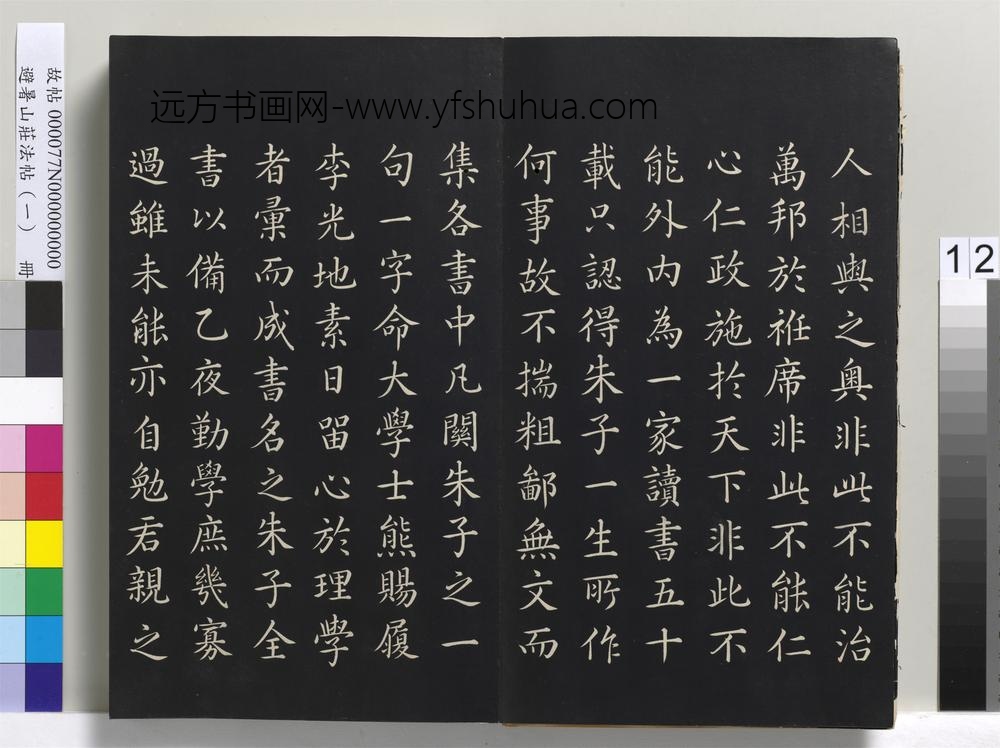 人相與之奧非此不能治
萬邦於袵席非此不能仁
心仁政施於天下非此不
能外内為一家讀書五十
載只認得朱子一生所作
何事故不揣粗鄙無文而
集各書中凡關朱子之一
句一字命大學士熊賜履
李光地素日留心於理學
者彙而成書名之朱子全
書以備乙夜勤學庶幾寡
過雖未能亦自勉君親之
远方书画网-www.yfshuhua.com
故帖 000077N000000000
避暑山莊法帖(一) 冊
12